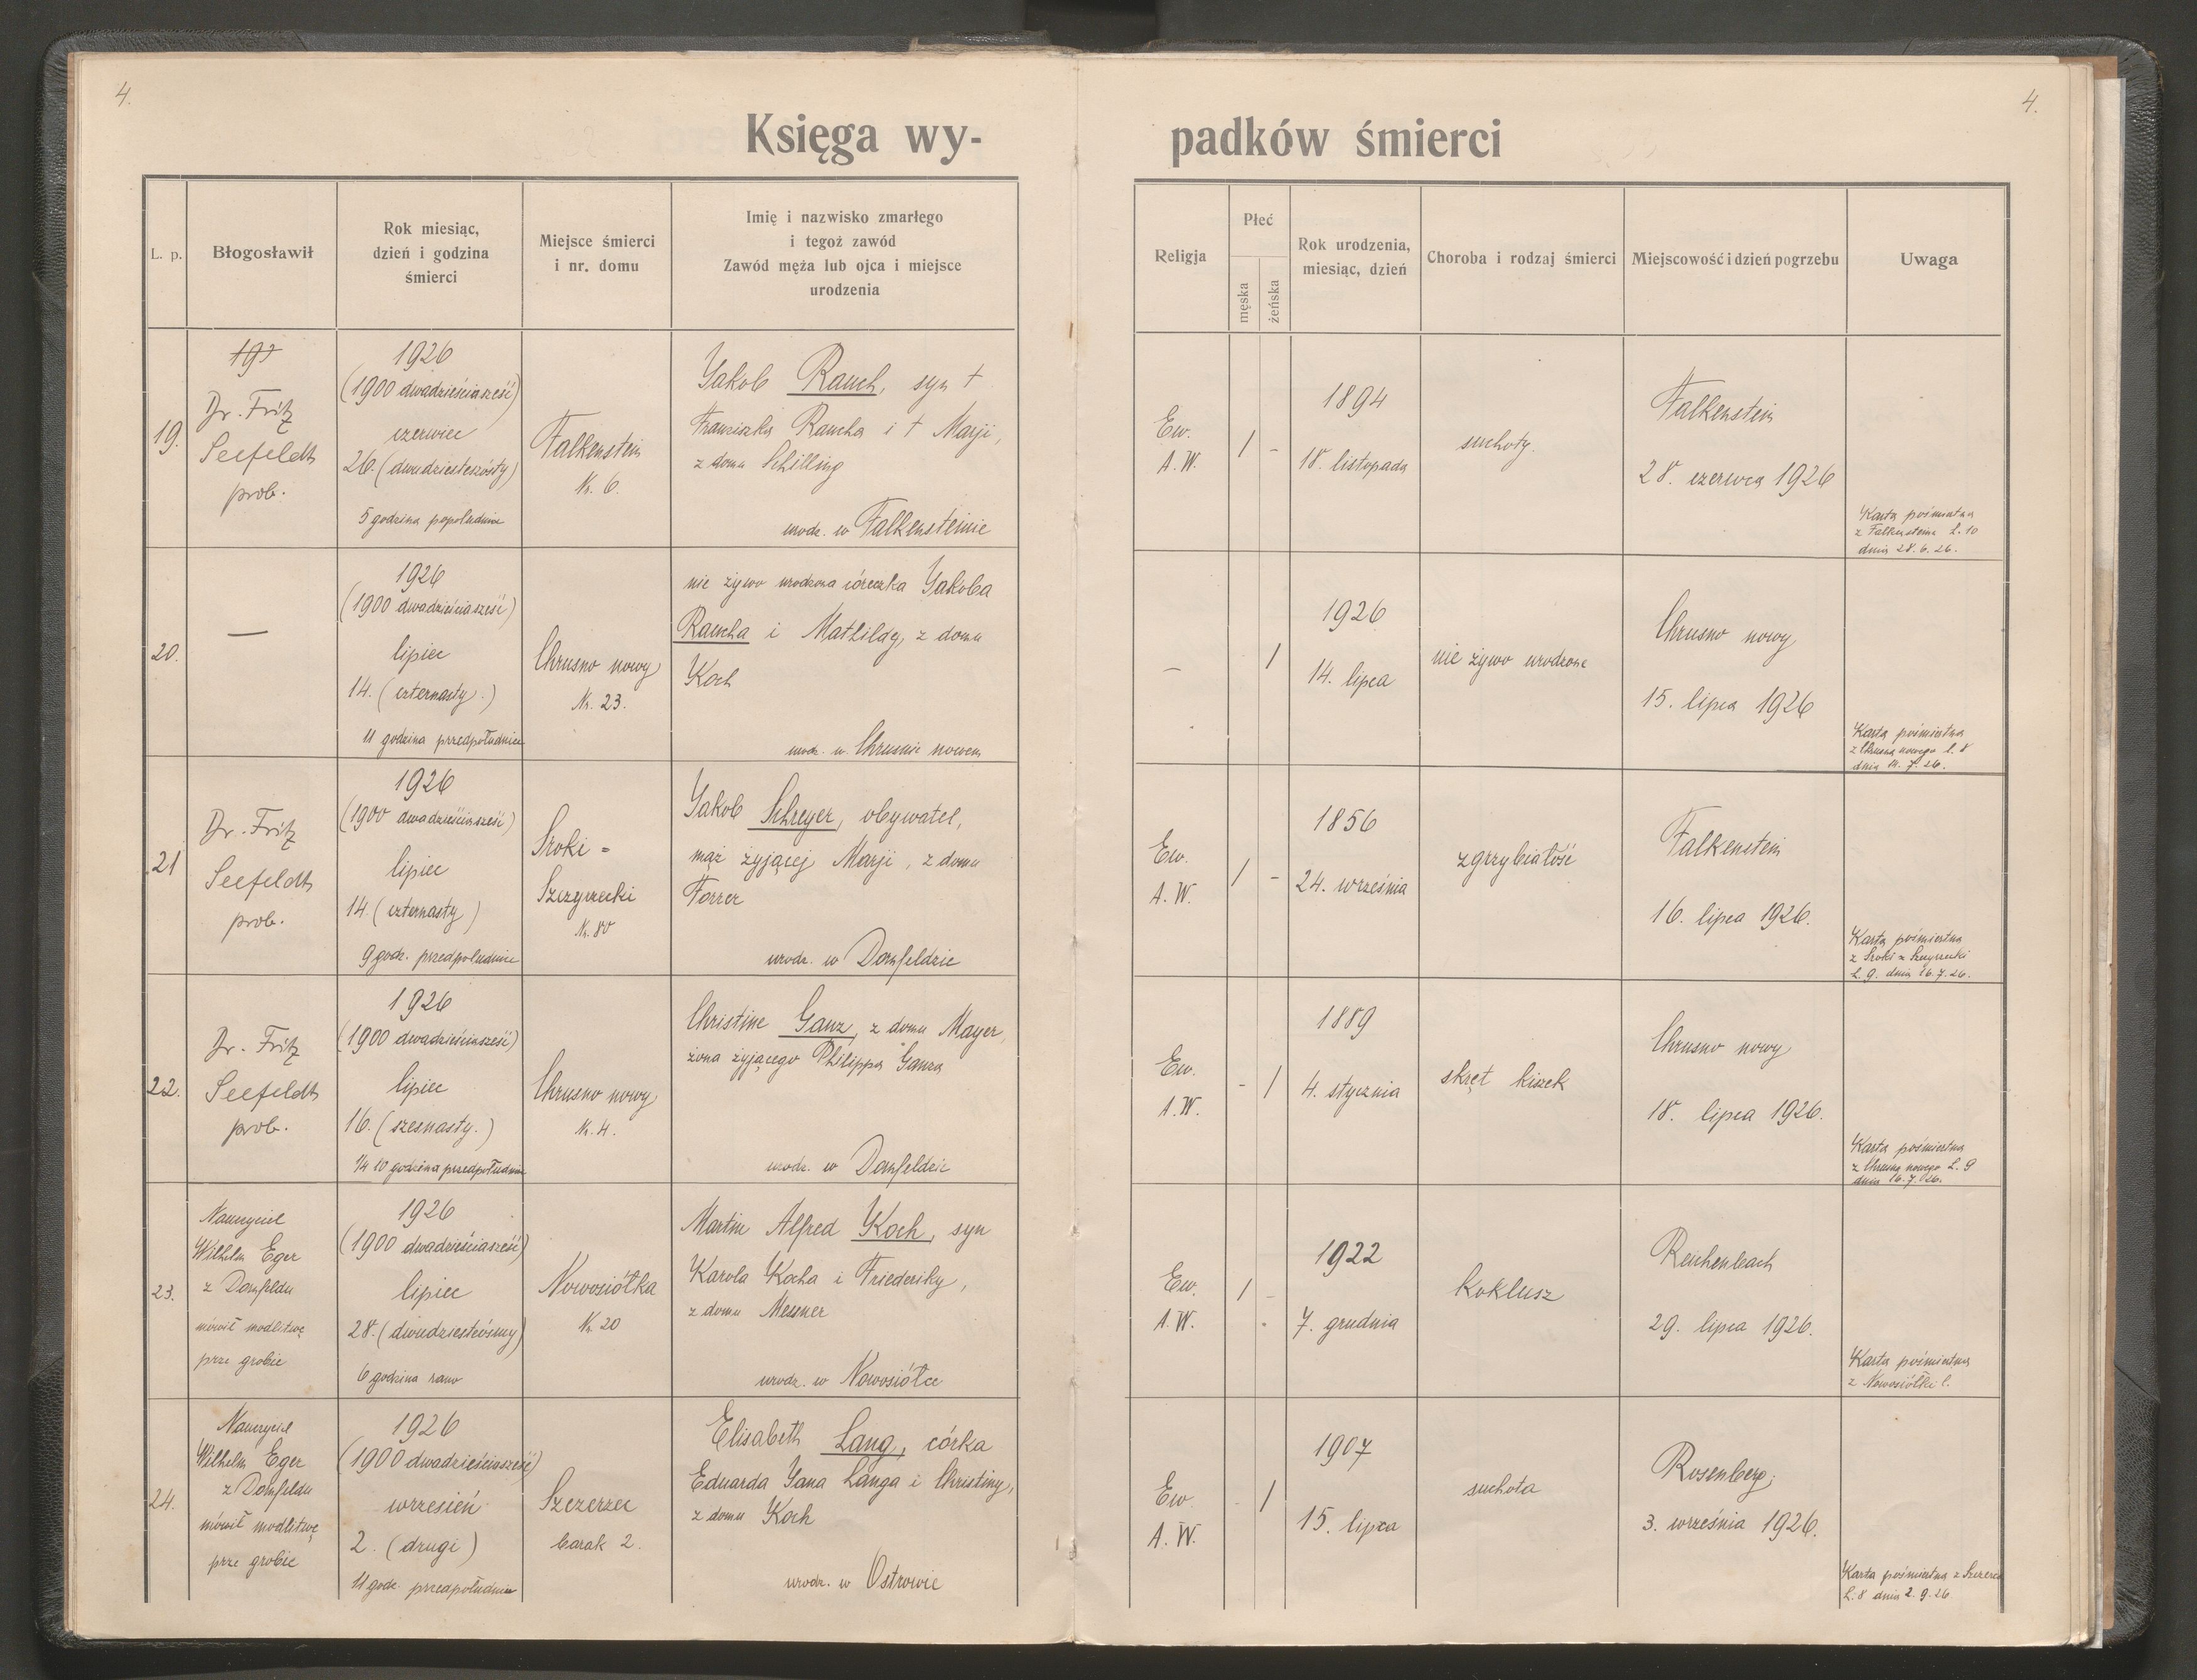 4.
4.
Księga wy-
padków śmierci
L. p.
Błogosławił
Rok miesiąc,
dzień i godzina
śmierci
Miejsce śmierci
i nr. domu
Imię i nazwisko zmarłego
i tegoż zawód
Zawód męża lub ojca i miejsce
urodzenia
Religja
Płeć
męska
żeńska
Rok urodzenia,
miesiąc, dzień
Choroba i rodzaj śmierci
Miejscowość i dzień pogrzebu
Uwaga
19.
Dr. Fritz
Seefeldt
prob.
1926
(1900 dwadzieściasześć)
czerwiec
26. (dwudziestszósty)
5 godzina popołudniu
Falkenstein
Nr. 6.
Jakob Rauch, syn †
Franziska Raucha i † Marji,
z domu Schilling
urodz. w Falkensteinie
Ew.
A. W.
1 -
1894
18. listopada
suchoty.
Falkenstein
28. czerwca 1926
Karta pośmiertna
z Falkensteina L. 10
dnia 28. 6. 26.
20.
—
1926
(1900 dwadzieściasześć)
lipiec
14. (czternasty.)
11 godzina przedpołudniem
Chrusno nowy
Nr. 23.
nie żywo urodzona córeczka Jakoba
Raucha i Mathildy, z domu
Koch
urodz. w Chrusnie nowem
-
1
1926
14. lipca
nie żywo urodzone
Chrusno nowy
15. lipca 1926
Karta pośmiertna
z Chrusna nowego L. 8
dnia 14. 7. 26.
21
Dr. Fritz
Seefeldt
prob.
1926
(1900 dwadzieściasześć)
lipiec
14. (czternasty)
9 godz. przedpołudniem
Sroki =
Szczyrzecki
Nr. 80
Jakob Schreyer, obywatel,
mąż żyjącej Marji, z domu
Forrer
urodz. w Dornfeldzie
Ew.
A. W.
1 -
1856
24. września
zgrzybiałość
Falkenstein
16. lipca 1926.
Karta pośmiertna
z Sroki =
L. 9. dnia 16. 7. 26.
22.
Dr. Fritz
Seefeldt
prob.
1926
(1900 dwadzieściasześć)
lipiec
16. (szesnasty.)
1/4 10 godzina przedpołudniem
Chrusno nowy
Nr. 4.
Christine Ganz, z domu Mayer,
żona żyjącego Philippa Ganza
urodz. w Dornfeldzie
Ew.
A. W.
- 1
1889
4. stycznia
skręt kiszek
Chrusno nowy
18. lipca 1926.
Karta pośmiertna
z Chrusna nowego L. 9
dnia 16. 7. 26.
23.
Nauczyciel
Wilhelm Eger
z Dornfeldu
mówił modlitwę
prze grobie
1926
(1900 dwadzieściasześć)
lipiec
28. (dwudziestósmy)
6 godzina rano
Nowosiółka
Nr. 20
Martin Alfred Koch, syn
Karola Kocha i Friederiky,
z domu Messner
urodz. w Nowosiółce
Ew.
A. W.
1 -
1922
7. grudnia
Koklusz
Reichenbach
29. lipca 1926.
Karta pośmiertna
z Nowosiółki L.
24.
Nauczyciel
Wilhelm Eger
z Dornfeldu
mówił modlitwę
prze grobie
1926
(1900 dwadzieściasześć)
wrzesień
2. (drugi)
11 godz. przedpołudniem
Szczerzec
barak 2.
Elisabeth Lang, córka
Eduarda Jana Langa i Christiny,
z domu Koch
urodz. w Ostrowie
Ew
A. W.
- 1
1907
15. lipca
suchota
Rosenberg,
3. września 1926.
Karta pośmiertna z Szczerca
L. 8 dnia 2. 9. 26